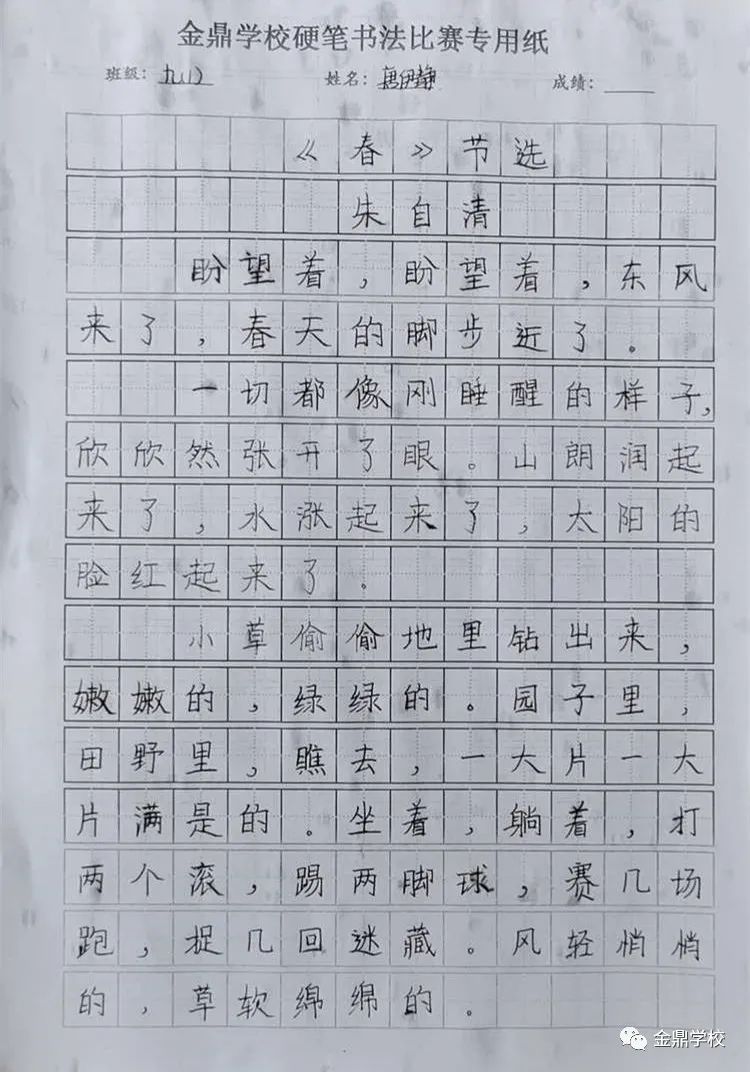 金鼎学校硬笔书法比赛专用纸
班级：九(1) 姓名：唐伊静 成绩：
《春》节选
朱自清
盼望着，盼望着，东风
来了，春天的脚步近了。
一切都像刚睡醒的样子，
欣欣然张开了眼。山朗润起
来了，水涨起来了，太阳的
脸红起来了。
小草偷偷地里钻出来，
嫩嫩的，绿绿的。园子里，
田野里，瞧去，一大片一大
片满是的。坐着，躺着，打
两个滚，踢两脚球，赛几场
跑，捉几回迷藏。风轻悄悄
的，草软绵绵的。
金鼎学校